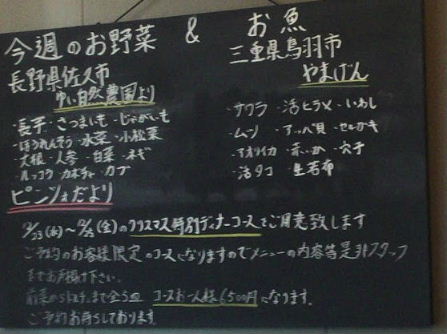 今週のお野菜 & お魚
長野県佐久市
ゆい自然農園より
・長芋・さつまいも・じゃがいも
・ほうれんそう・水菜・小松菜
・大根・人参・白菜・ネギ
・ルッコラ・カボチャ・カブ
三重県鳥羽市
やまげん
・サワラ・活ヒラメ・いわし
・ムツ
・アオリイカ・赤いか・穴子
・活タコ 生若布
ピニョだより
12/23(水)〜12/25(金)のクリスマス特別ディナーコースをご用意致します
ご予約のお客様限定のコースになりますのでメニューの内容等是非スタッフ
までお声掛け下さい。
前菜から まで全5皿 コースお一人様6500円になります。
ご予約お待ちしております